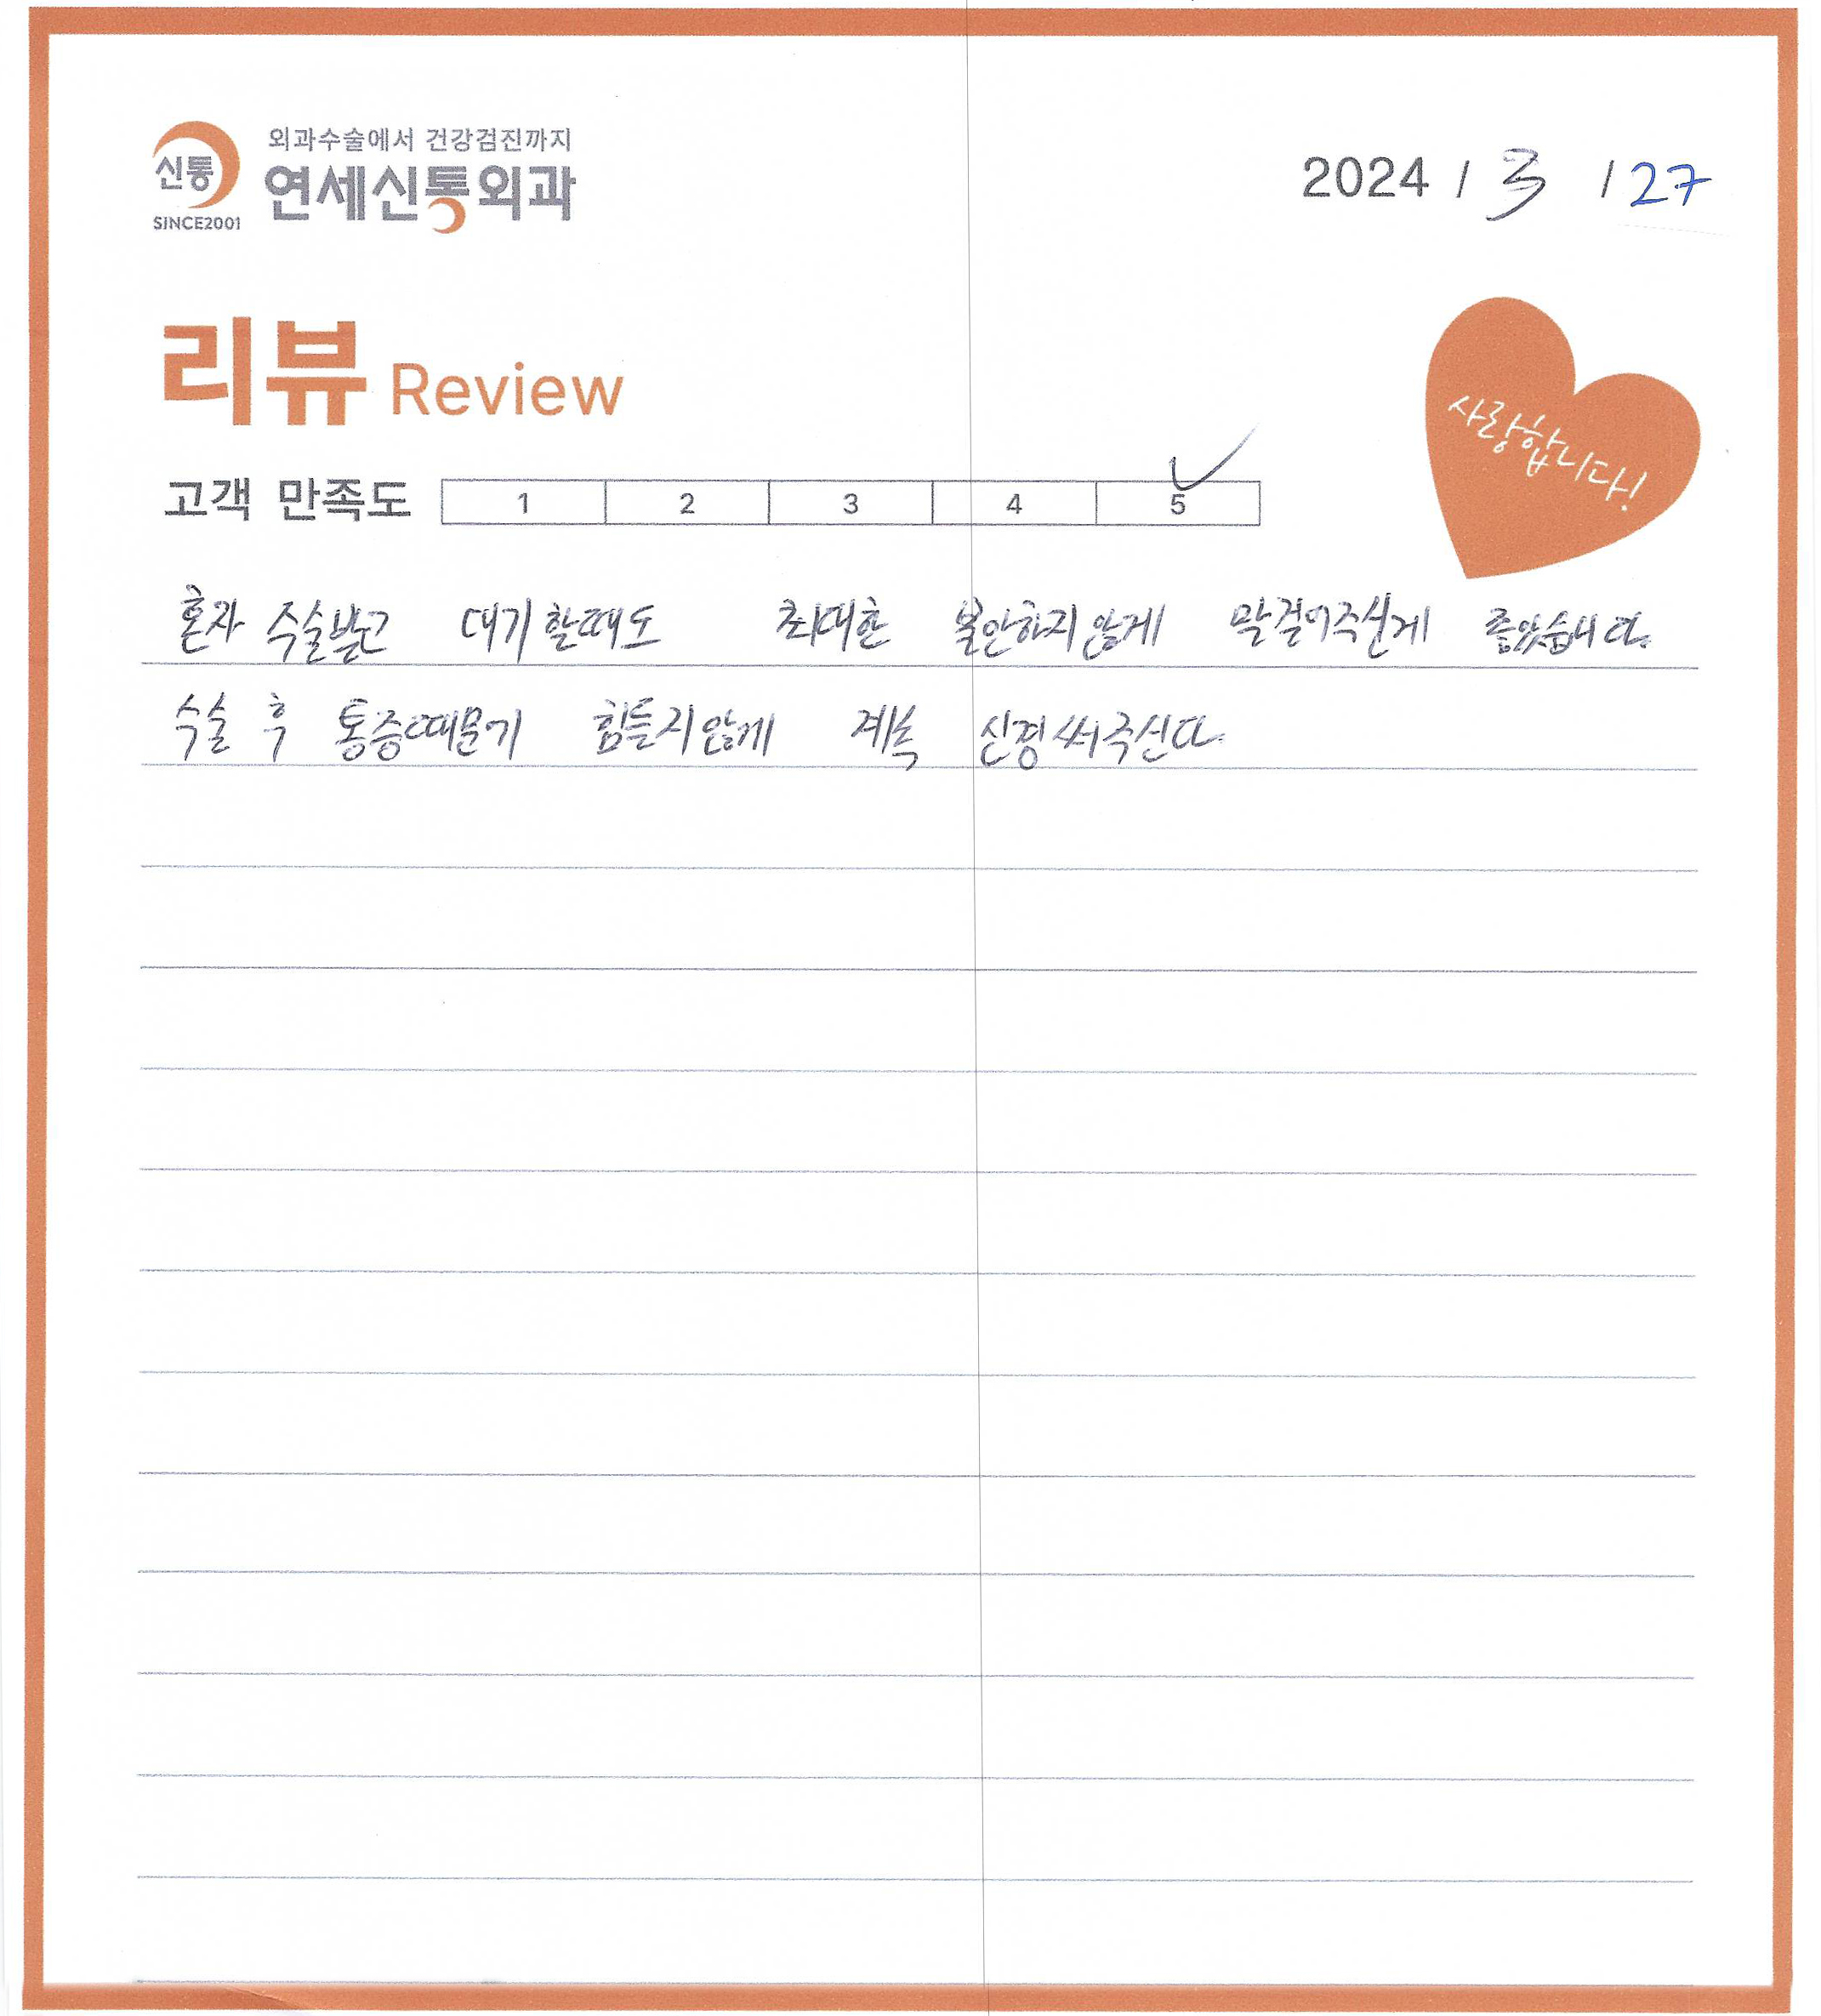 신통
SINCE2001
외과수술에서 건강검진까지
연세신통외과
2024 / 3 / 27
리뷰 Review
사랑합니다!
고객 만족도 1 2 3 4 5
혼자 수술받고 대기할때도 최대한 불안하지않게 말걸어주신게 좋았습니다.
수술 후 통증때문기 힘들지않게 계속 신경써주신다.